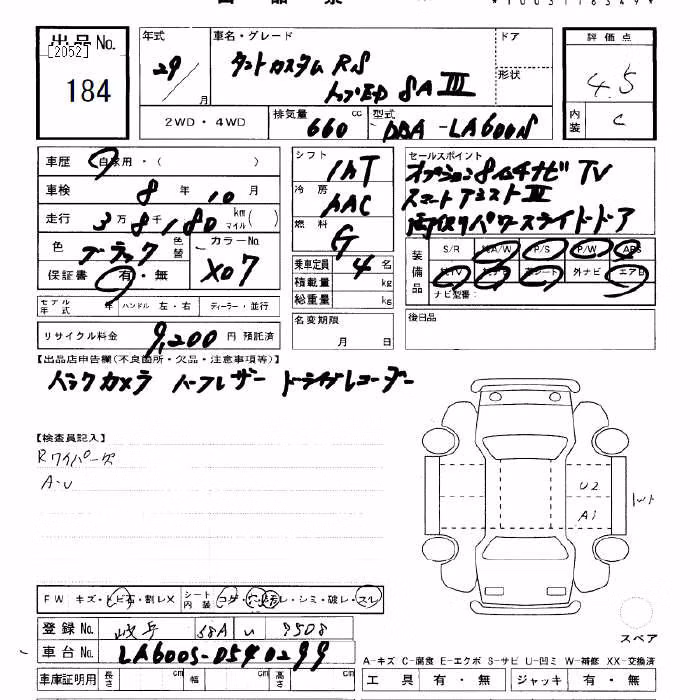 出品No.
[2052]
184
年式 車名・グレード ドア 評価点
29 タントカスタム RS
月 トップED SA III 形状 4.5
2WD・4WD 排気量 660 cc 型式 DBA-LA600S 内装 C
車歴 自家用・( )
シフト IAT セールスポイント
オプション8インチナビ TV
車検 8年 10月
冷房 AAC スマートアシストIII
走行 3万8千180 km マイル( )
燃料 G 両側パワースライドドア
色 ブラック 色替 カラーNo. X07
乗車定員 4名
装備品 S/R 純A/W P/S P/W ABS
保証書 有・無
積載量 kg 純TV 純ナビ 革シート 外ナビ エアB
総重量 kg ナビ型番:
モデル年式 年 ハンドル 左・右 ディーラー・並行
名変期限 月 日
後日品
リサイクル料金 9,200円 預託済
【出品店申告欄(不良箇所・欠品・注意事項等)】
バックカメラ ハーフレザー ドライブレコーダー
【検査員記入】
Rワイパーズ
A-U
U2
A1
FW キズ・トビ石・割レX シート内装 コゲ・穴・汚レ・シミ・破レ・スレ
登録No. 岐阜 58A い 9508
スペア
車台No. LA600S-0540299
A-キズ C-腐食 E-エクボ S-サビ U-凹ミ W-補修 XX-交換済
車庫証明用 長さ cm 幅 cm 高さ cm 工具 有・無 ジャッキ 有・無